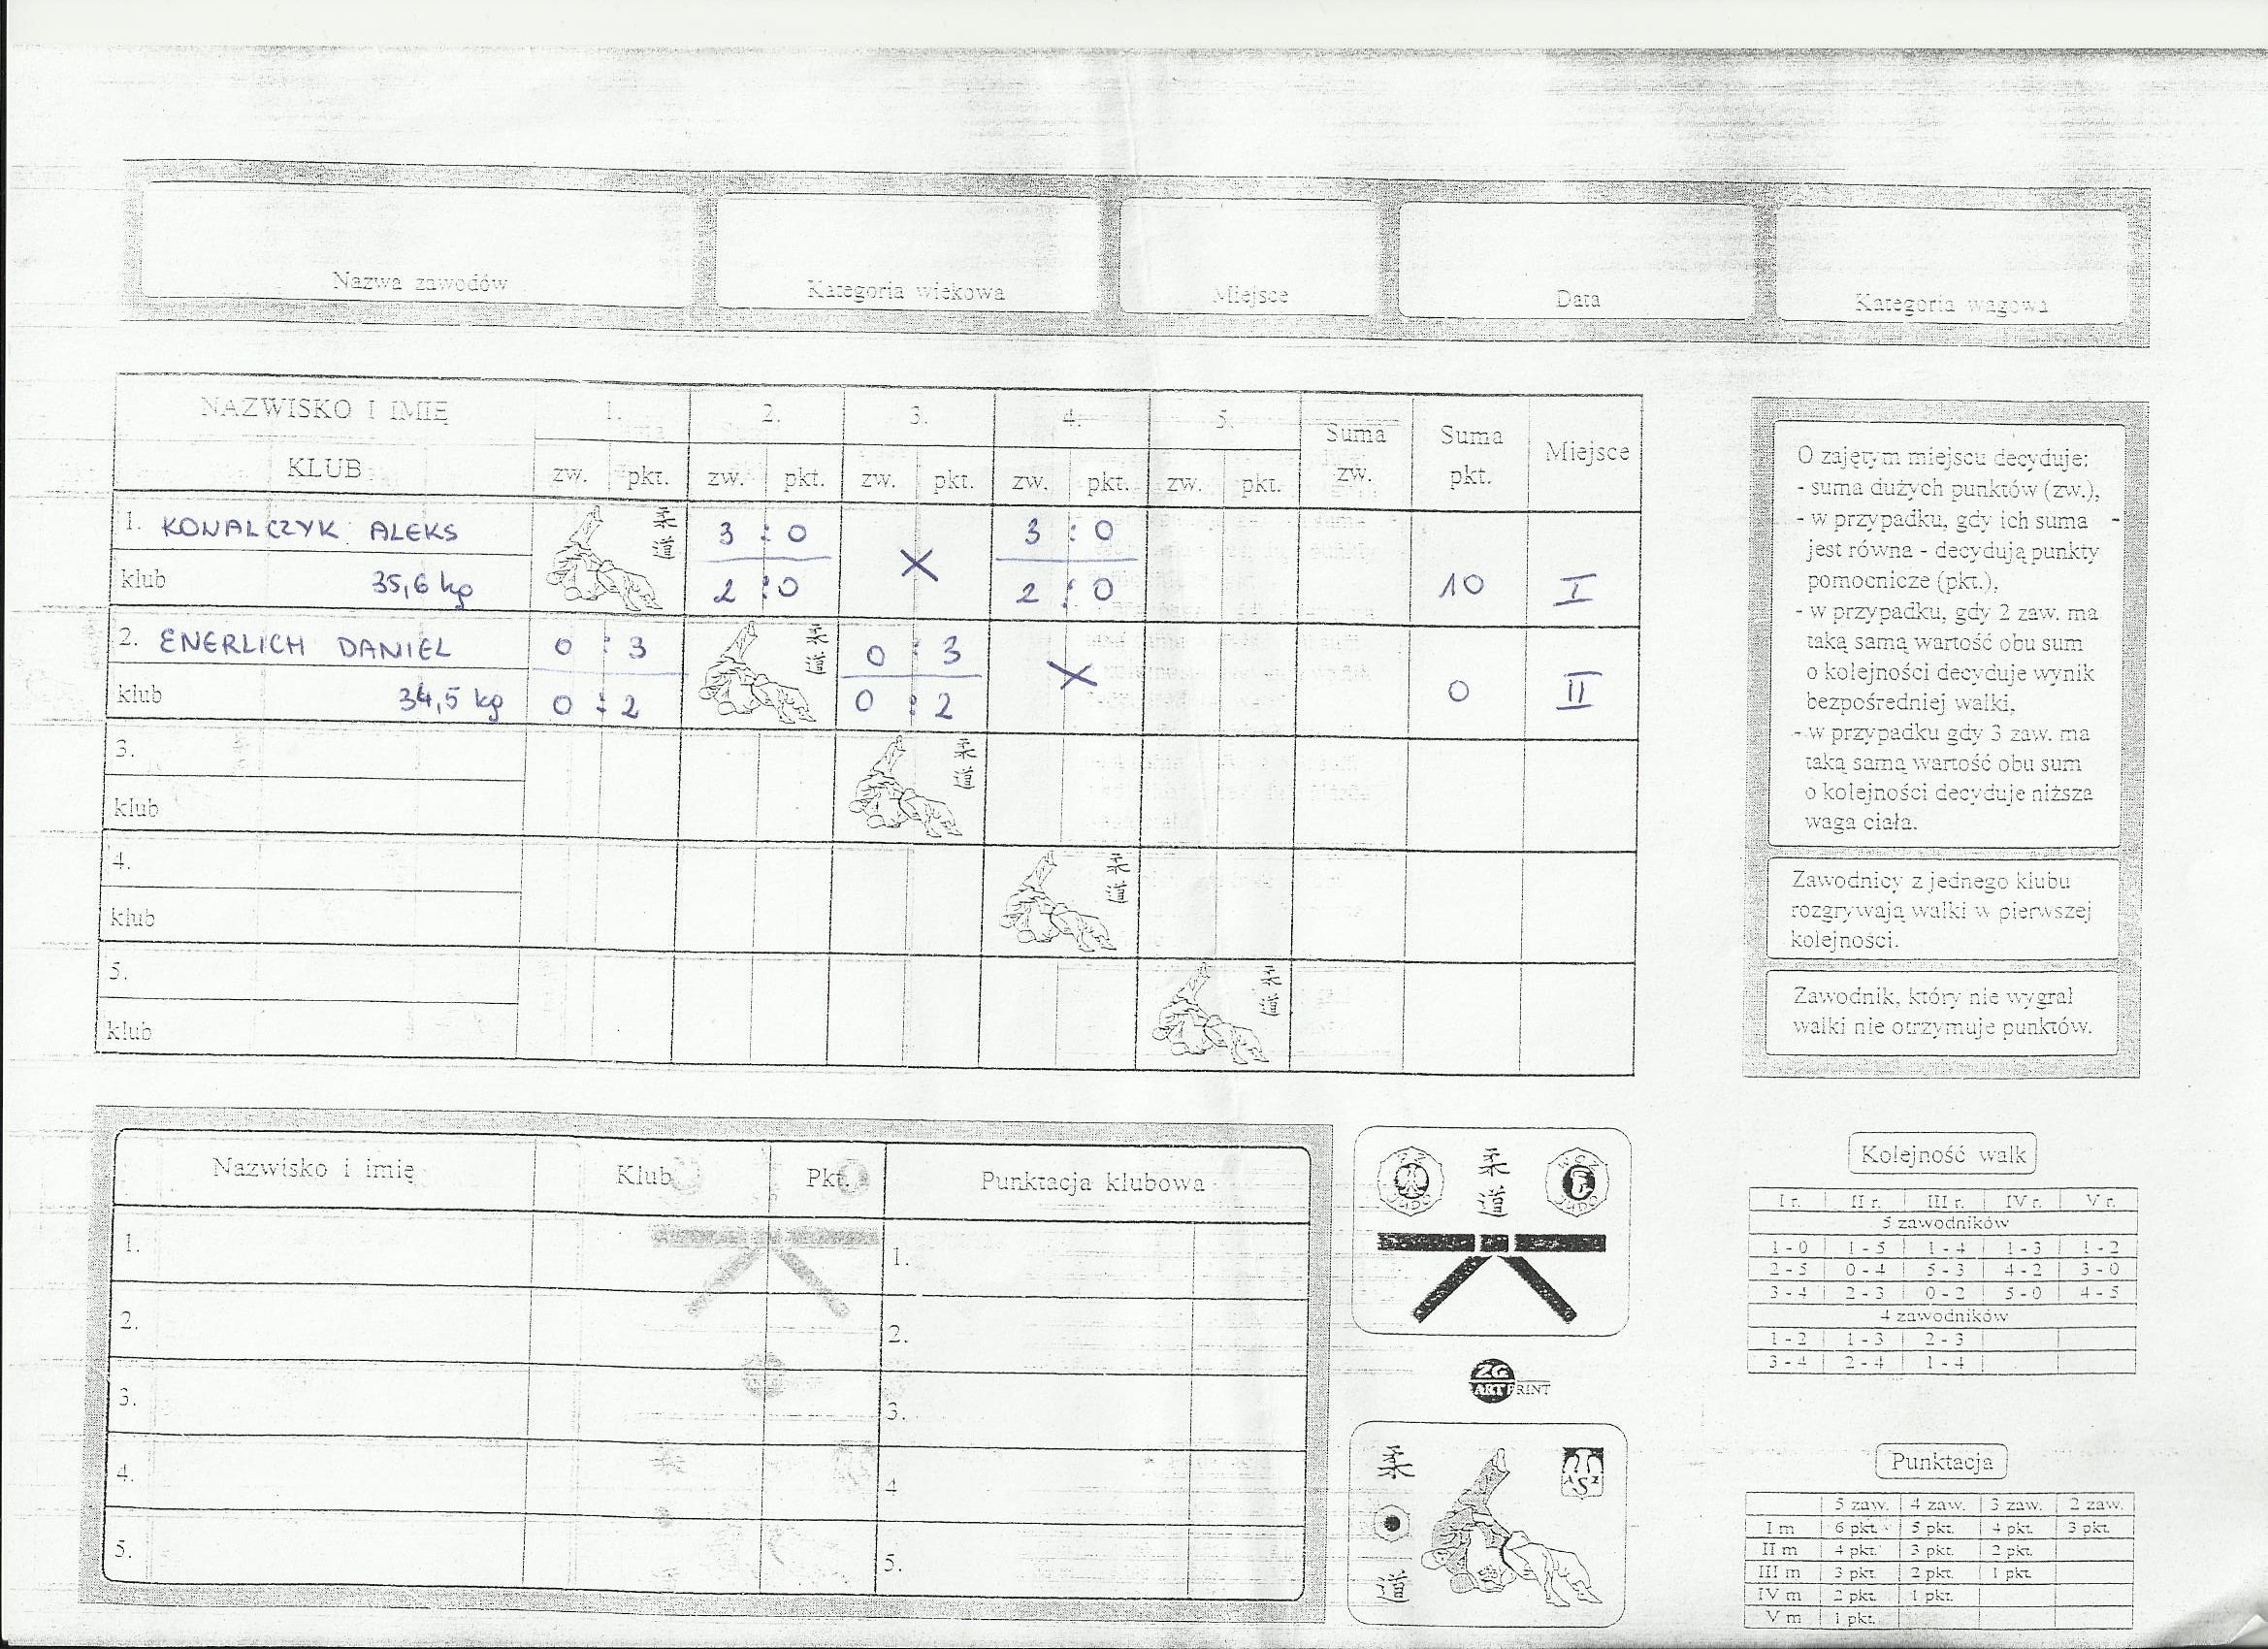 Nazwa zawodów
Kategoria wiekowa
Miejsce
Data
Kategoria wagowa
NAZWISKO I IMIĘ 1. 2. 3. 4. 5. Suma zw. Suma pkt. Miejsce
KLUB zw. pkt. zw. pkt. zw. pkt. zw. pkt. zw. pkt.
1. KOWALCZYK ALEKS 柔道 3 : 0 X 3 : 0
klub 35,6 kg 2 : 0 2 : 0 10 I
2. ENERLICH DANIEL 0 : 3 柔道 0 : 3 X
klub 34,5 kg 0 : 2 0 : 2 0 II
3. 柔道
klub
4. 柔道
klub
5. 柔道
klub
O zajętym miejscu decyduje:
- suma dużych punktów (zw.),
- w przypadku, gdy ich suma -
jest równa - decydują punkty
pomocnicze (pkt.),
- w przypadku, gdy 2 zaw. ma
taką samą wartość obu sum
o kolejności decyduje wynik
bezpośredniej walki,
- w przypadku gdy 3 zaw. ma
taką samą wartość obu sum
o kolejności decyduje niższa
waga ciała.
Zawodnicy z jednego klubu
rozgrywają walki w pierwszej
kolejności.
Zawodnik, który nie wygrał
walki nie otrzymuje punktów.
Nazwisko i imię Klub Pkt. Punktacja klubowa
1. 1.
2. 2.
3. 3.
4. 4
5. 5.
柔道
JUDO
JUDO
ZG
ART PRINT
柔
道
AZS
Kolejność walk
I r. II r. III r. IV r. V r.
5 zawodników
1 - 0 1 - 5 1 - 4 1 - 3 1 - 2
2 - 5 0 - 4 5 - 3 4 - 2 3 - 0
3 - 4 2 - 3 0 - 2 5 - 0 4 - 5
4 zawodników
1 - 2 1 - 3 2 - 3
3 - 4 2 - 4 1 - 4
Punktacja
5 zaw. 4 zaw. 3 zaw. 2 zaw.
I m 6 pkt. 5 pkt. 4 pkt. 3 pkt.
II m 4 pkt. 3 pkt. 2 pkt.
III m 3 pkt. 2 pkt. 1 pkt.
IV m 2 pkt. 1 pkt.
V m 1 pkt.